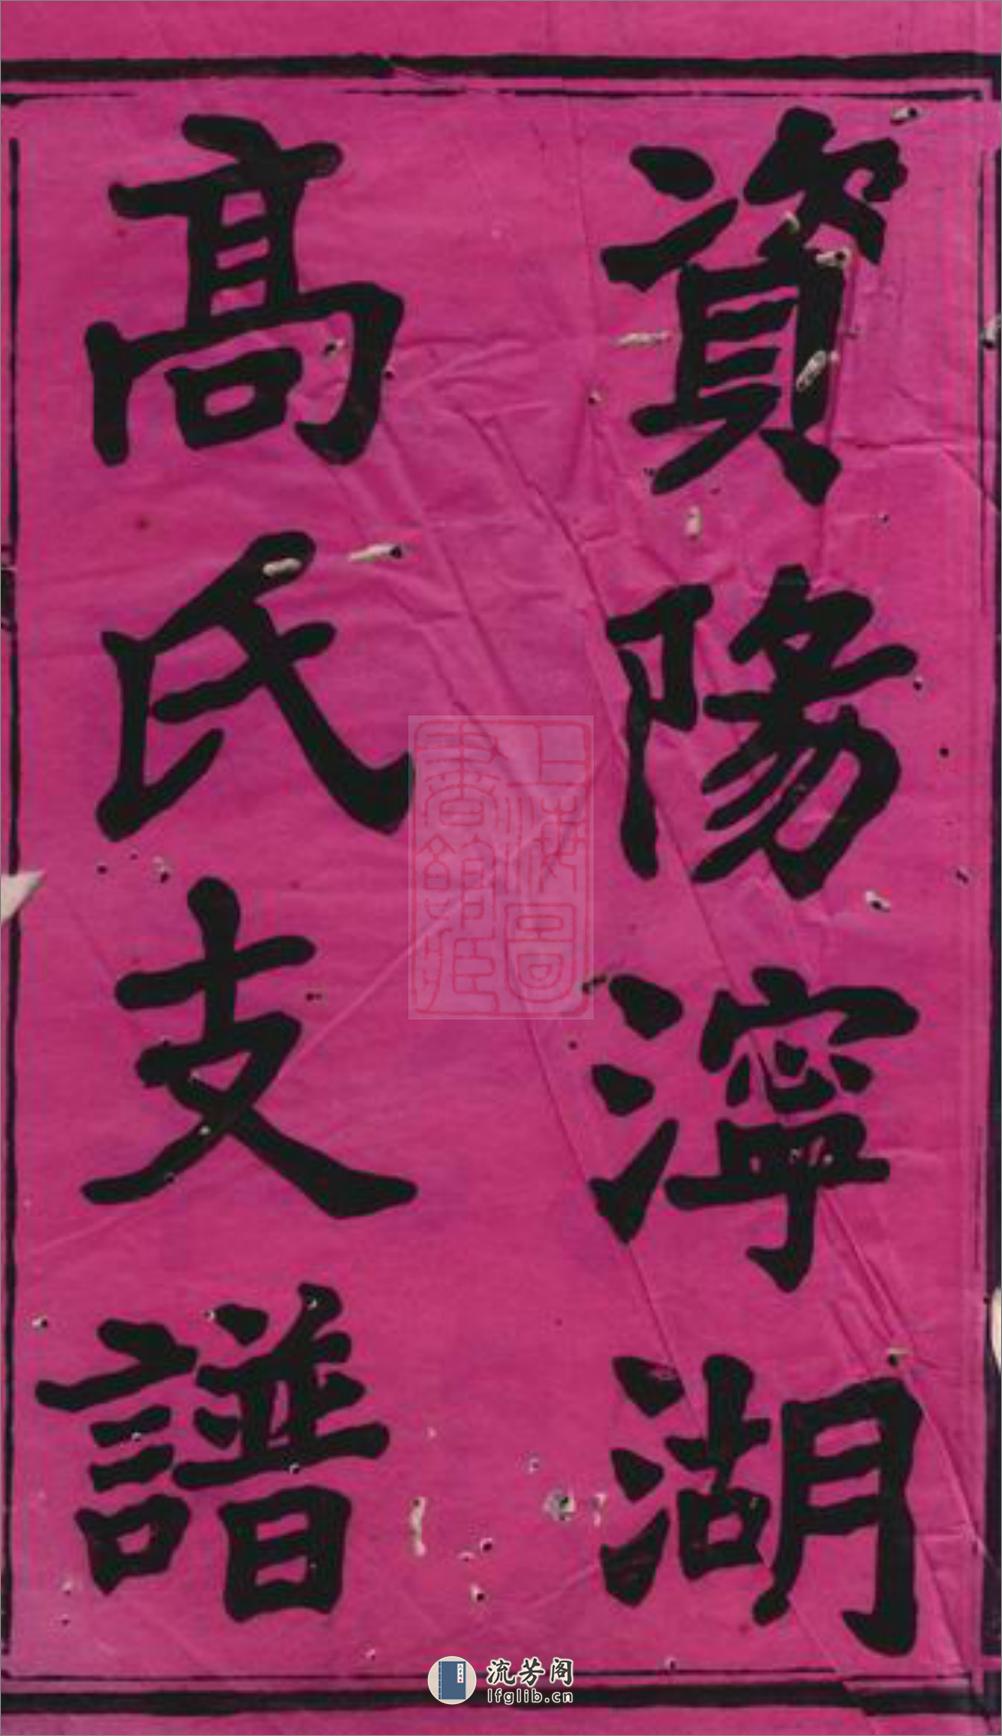 資陽濘湖
髙氏支譜
上海圖書館藏
流芳阁
lfglib.cn